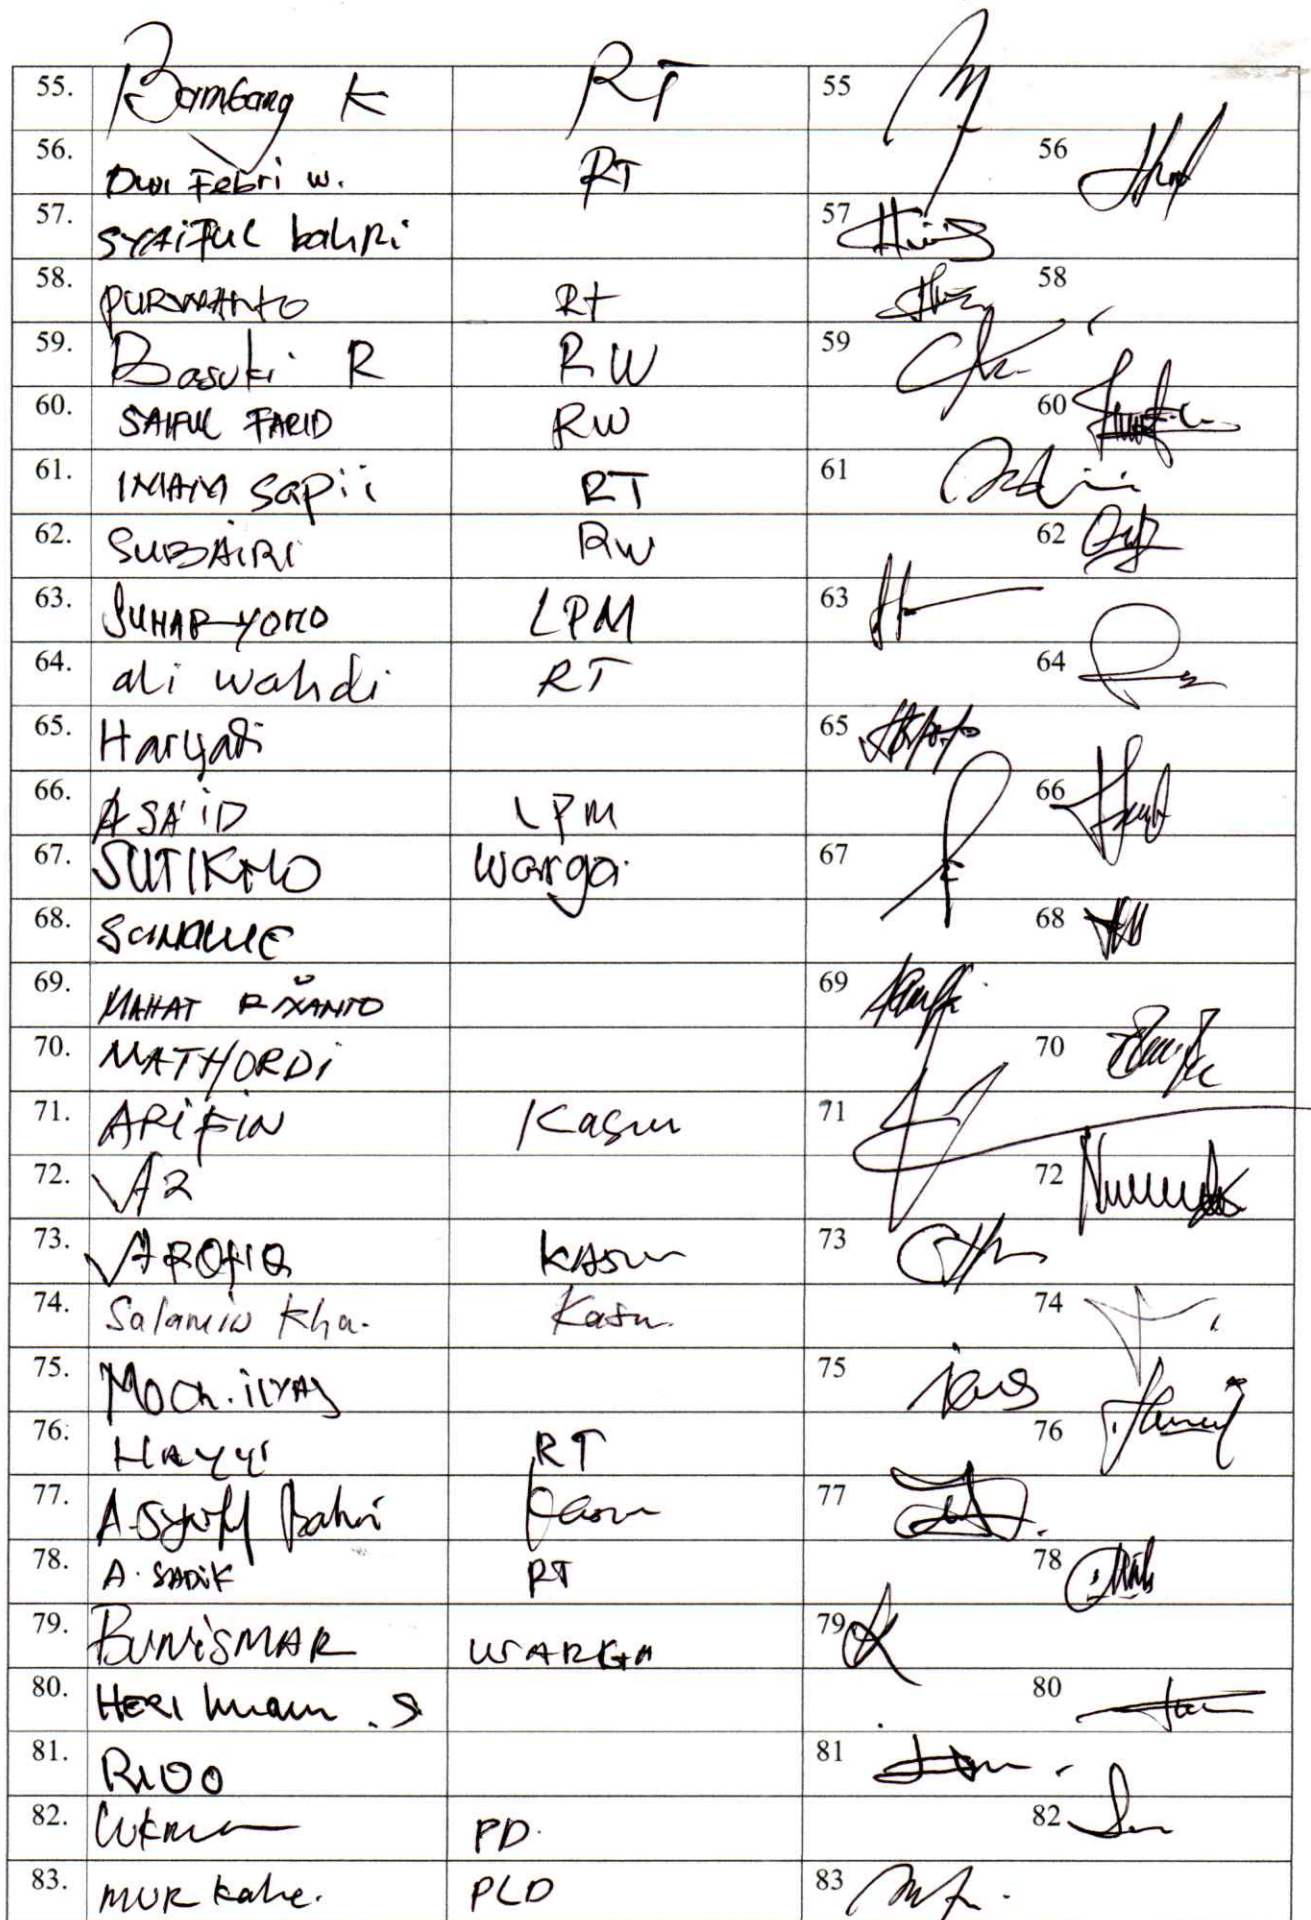 55. Bambang K RT 55
56. Dwi Febri W. RT 56
57. SYAIFUL bahRi 57
58. PURWANTO Rt 58
59. Basuki R RW 59
60. SAIFUL FARID RW 60
61. IMAM Sapii RT 61
62. SUBAIRI RW 62
63. SUHARYONO LPM 63
64. ali wahdi RT 64
65. Haryati 65
66. A SA'ID LPM 66
67. SUTIKNO Warga 67
68. 68
69. MAHAT RIYANTO 69
70. MATHORDi 70
71. ARiFIN Kasun 71
72. 72
73. AROFIQ KASun 73
74. Salamin Kha. Kasun. 74
75. MOCh. iLYAS 75
76. HAYYi RT 76
77. A. Bahri Kasun 77
78. A. SADiK RT 78
79. BUNiSMAR WARGA 79
80. HERI Imam .S 80
81. 81
82. Lukman PD. 82
83. PLD 83